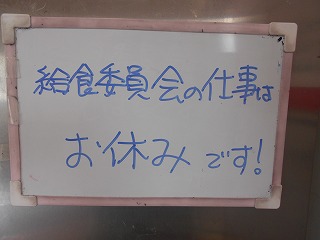 給食委員会の仕事は
お休みです!